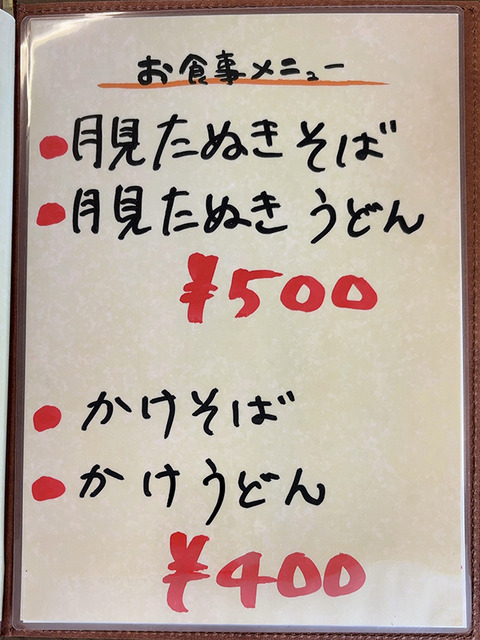 お食事メニュー
●月見たぬきそば
●月見たぬきうどん
¥500
●かけそば
●かけうどん
¥400